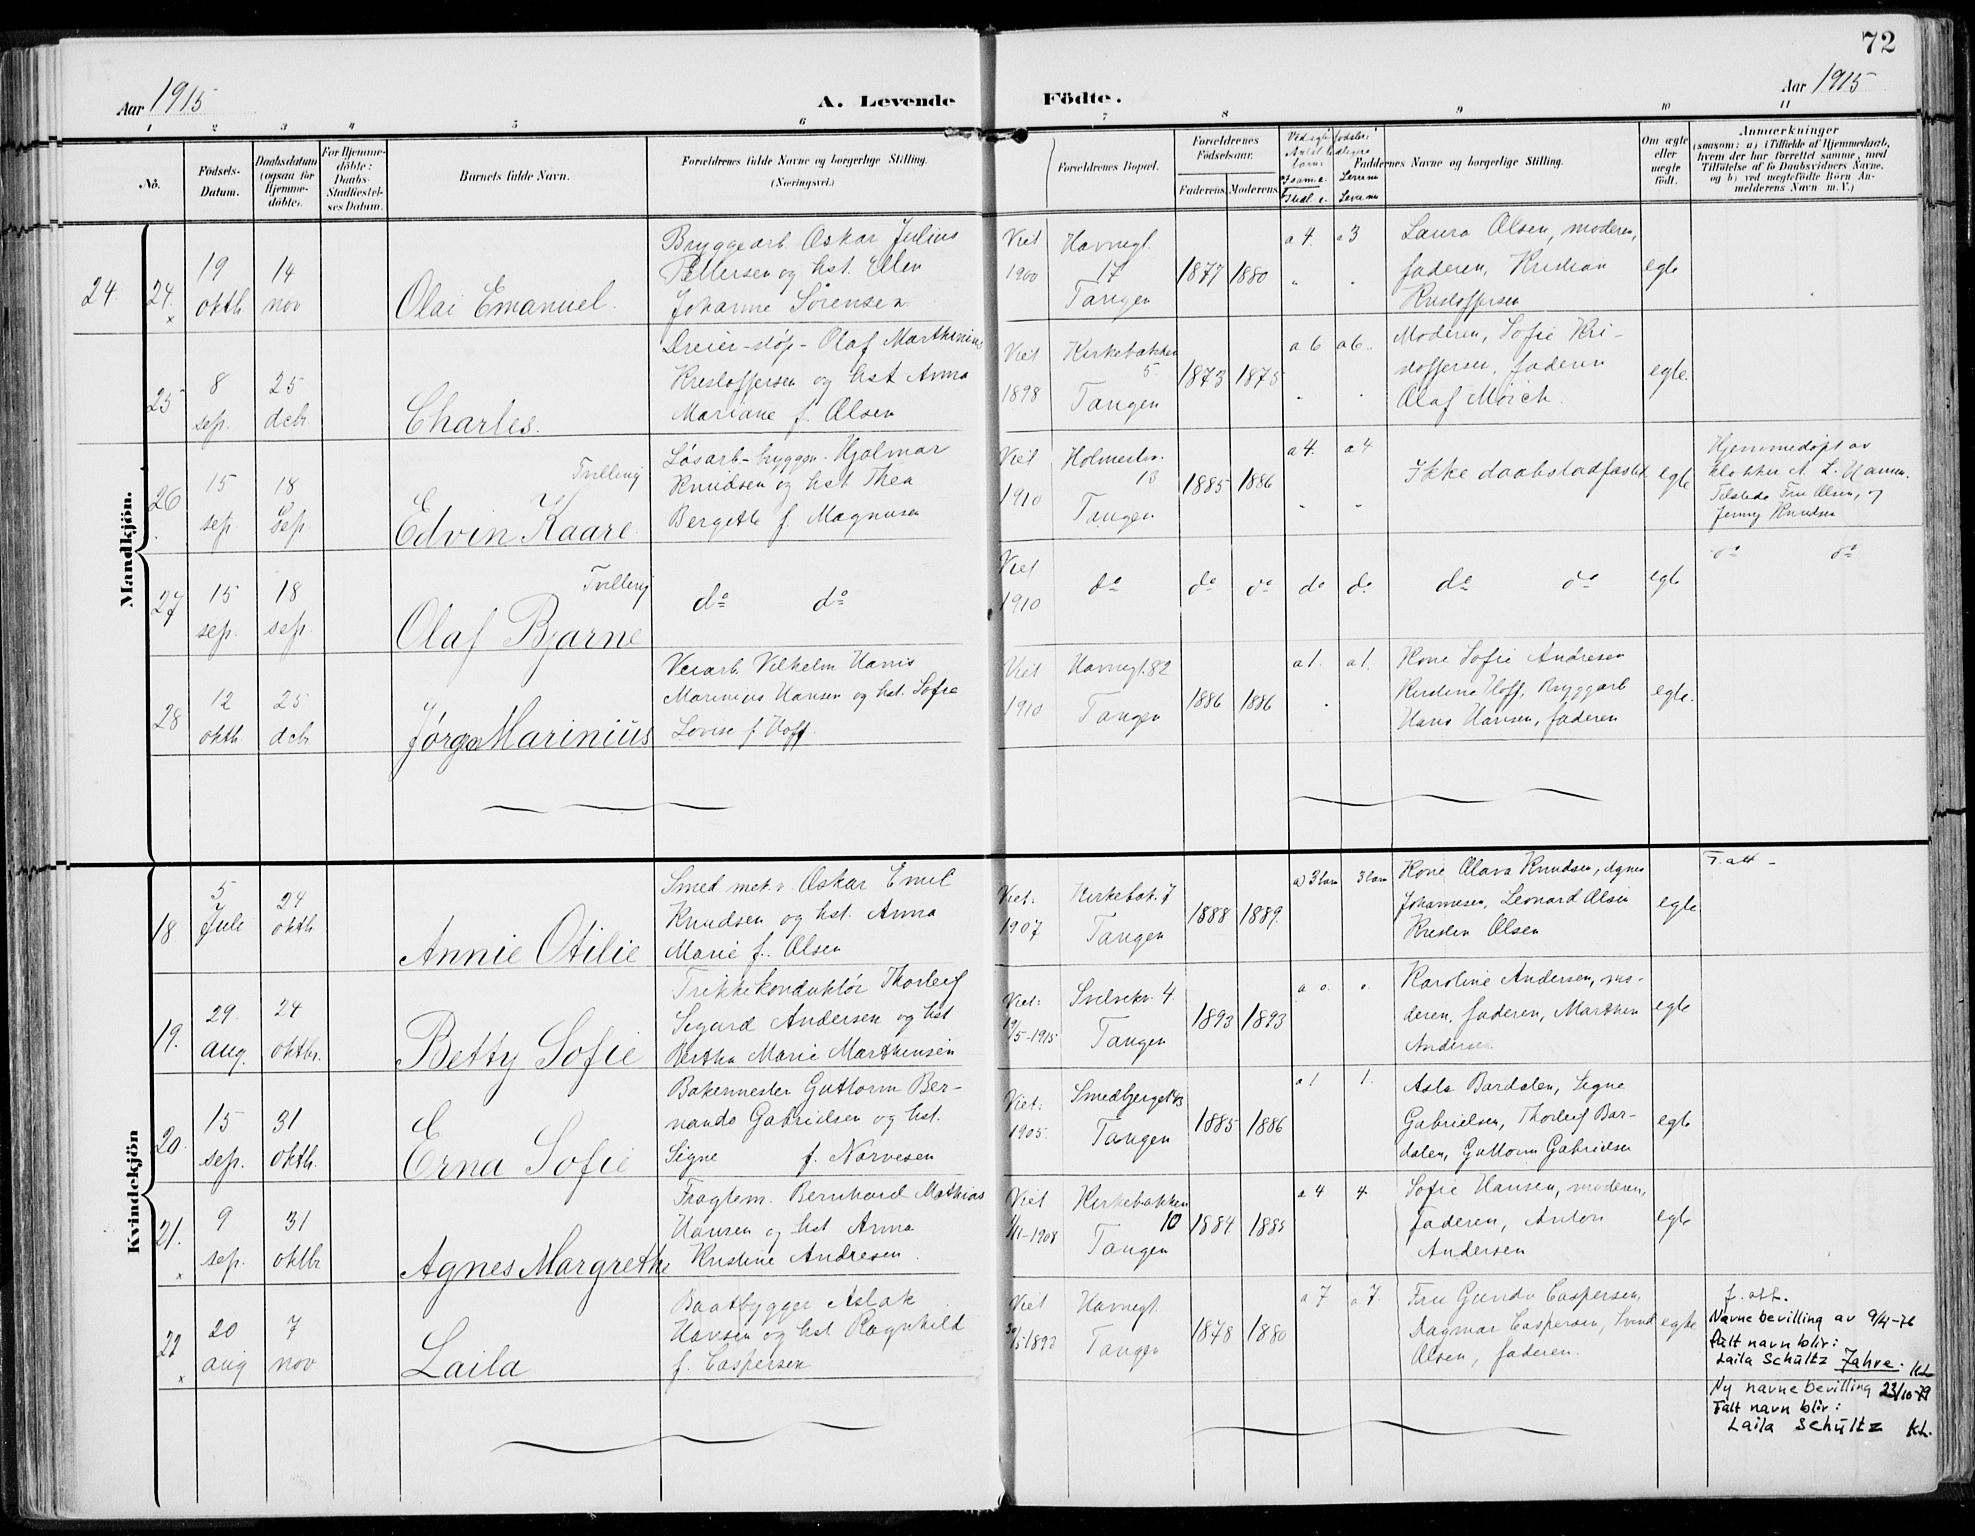 72
Aar 1915
A. Levende Födte.
Aar 1915
1 2 3 4 5 6 7 8 9 10 11
No.
Födsels-
Datum.
Daabsdatum
(ogsaa for
Hjemme-
döbte).
For Hjemme-
döbte:
Daabs-
Stadfæstel-
ses Datum.
Barnets fulde Navn.
Forældrenes fulde Navne og borgerlige Stilling.
(Næringsvei.)
Forældrenes Bopæl.
Forældrenes
Födselsaar.
Faderens. Moderens.
Faddernes Navne og borgerlige Stilling.
Om ægte
eller
uægte
født.
Anmærkninger
(saasom: a) i Tilfælde af Hjemmedaab,
hvem der har forrettet samme, med
Tilföielse af to Daabsvidners Navne,
og b) ved uægtefödte Börn An-
melderens Navn m. V.)
Mandkjön.
24. 24. ×
19
oktb
14
nov
Olai Emanuel.
Bryggearb. Oskar Julius
Pettersen og hst. Ellen
Johanne Sørensen.
Viet
1900
Havnegt.
17
Tangen
1877 1880
a 4. a 3
Laura Olsen, moderen,
faderen, Kristian
Kristoffersen
egte
25
8
sep.
25
dcbr.
Charles.
Dreier-støp- Olaf Marthinius
Kristoffersen og hst Anna
Mariane f. Olsen
Viet
1898
Kirkebakken
5.
Tangen
1873 1875
a 6 a 6.
Moderen, Sofie Kri-
stoffersen, faderen
Olaf Mörch.
egte.
26
15
sep.
18
sep.
Tvilling
Edvin Kaare.
Løsarb-brygge. Hjalmar
Knudsen og hst Thea
Bergette f. Magnusen
Viet
1910
Holmestr.
13
Tangen
1885 1886
a 4. a 4
Ikke daabstadfæstet
egte
Hjemmedøpt av
klokker A. L. Hansen.
Tilstede Fru Olsen, og
Jenny Knudsen
27
15
sep.
18
sep.
Tvilling
Olaf Bjarne
do do
Viet
1910
do do do do do do do
egte
do do
28
12
oktb
25
dcbr
Jørgen Marinius
Veiarb. Vilhelm Hans
Marinius Hansen og hst. Sofie
Lovise f Hoff.
Viet
1910
Havnegt. 82
Tangen
1886 1886
a 1. a 1.
Kone Sofie Andresen
Kirstine Hoff, Bryggarb
Hans Hansen, faderen
egte.
Kvindekjön
18
5
Juli
24
oktb
Annie Otilie
Smed mek. v. Oskar Emil
Knudsen og hst. Anna
Marie f. Olsen
Viet:
1907
Kirkebak. 7
Tangen
1888 1889.
a) 3 barn 3 barn
Kone Olava Knudsen, Agnes
Johannesen, Leonard Olsen
Kristen Olsen
egte
F. att -
19.
29.
aug.
24
oktbr.
Betty Sofie
Trikkekonduktör Thorleif
Sigurd Andersen og hst
Bertha Marie Marthinsen
Viet:
19/5-1915
Svelvikv. 4
Tangen
1893 1893
a o. o.
Karoline Andersen, mo-
deren, faderen, Marthin
Andersen
egte
20.
15
sep.
31
oktb.
Erna Sofie
Bakermester Guttorm Ber-
nando Gabrielsen og hst.
Signe f. Norvesen
Viet:
1905.
Smedbjerget
Tangen
1885 1886
a 1 1.
Asta Bardalen, Signe
Gabrielsen, Thorleif Bar-
dalen, Guttorm Gabrielsen
egte
21. ×
9
sep.
31
oktbr
Agnes Margrethe
Fragtem. Bernhard Mathias
Hansen og hst Anna
Kristine Andresen.
Viet
1/11-1908
Kirkebakken
10
Tangen
1884 1885
a 4 4.
Sofie Hansen, moderen,
Faderen, Anton
Andersen
egte
22 ×
20
aug
7
nov.
Laila
Baatbygger Aslak
Hansen og hst Ragnhild
f. Caspersen
Viet
Havnegt.
Tangen
1878 1880
a 7 a 7.
Fru Gunda Caspersen,
Dagmar Caspersen,
Olsen, faderen.
egte
f. att.
Navnebevilling av 9/4-76
fullt navn blir:
Laila Schültz Jahre. KL
Ny navnebevilling 23/10-79
Fullt navn blir:
Laila Schültz KL.